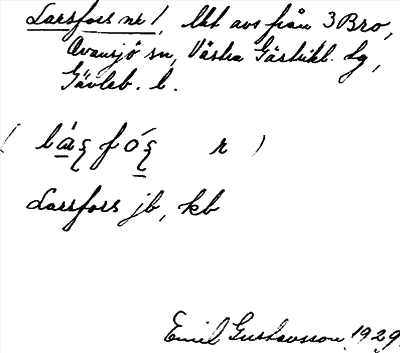 Larsfors nr 1, lht avs från 3 Bro,
Ovansjö sn, Västra Gästrikl. dg,
Gävleb. l.
( láʂ fóʂ r )
Larsfors jb, kb
Emil Gustavsson 1929